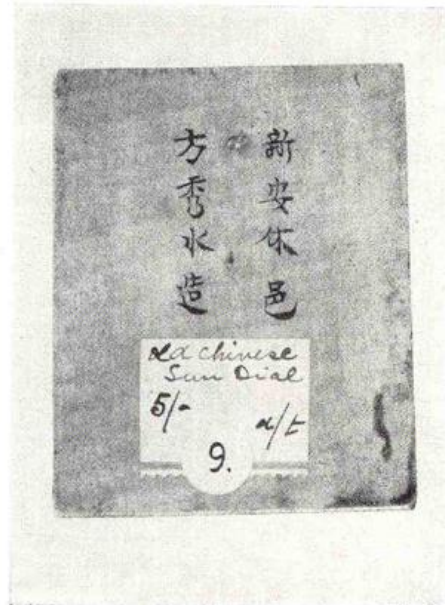 新安休邑
方秀水造
Old Chinese
Sun Dial
5/-
9.